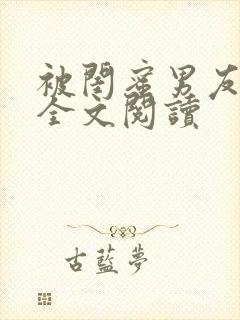 被閨蜜男友
全文閱讀
古藍夢